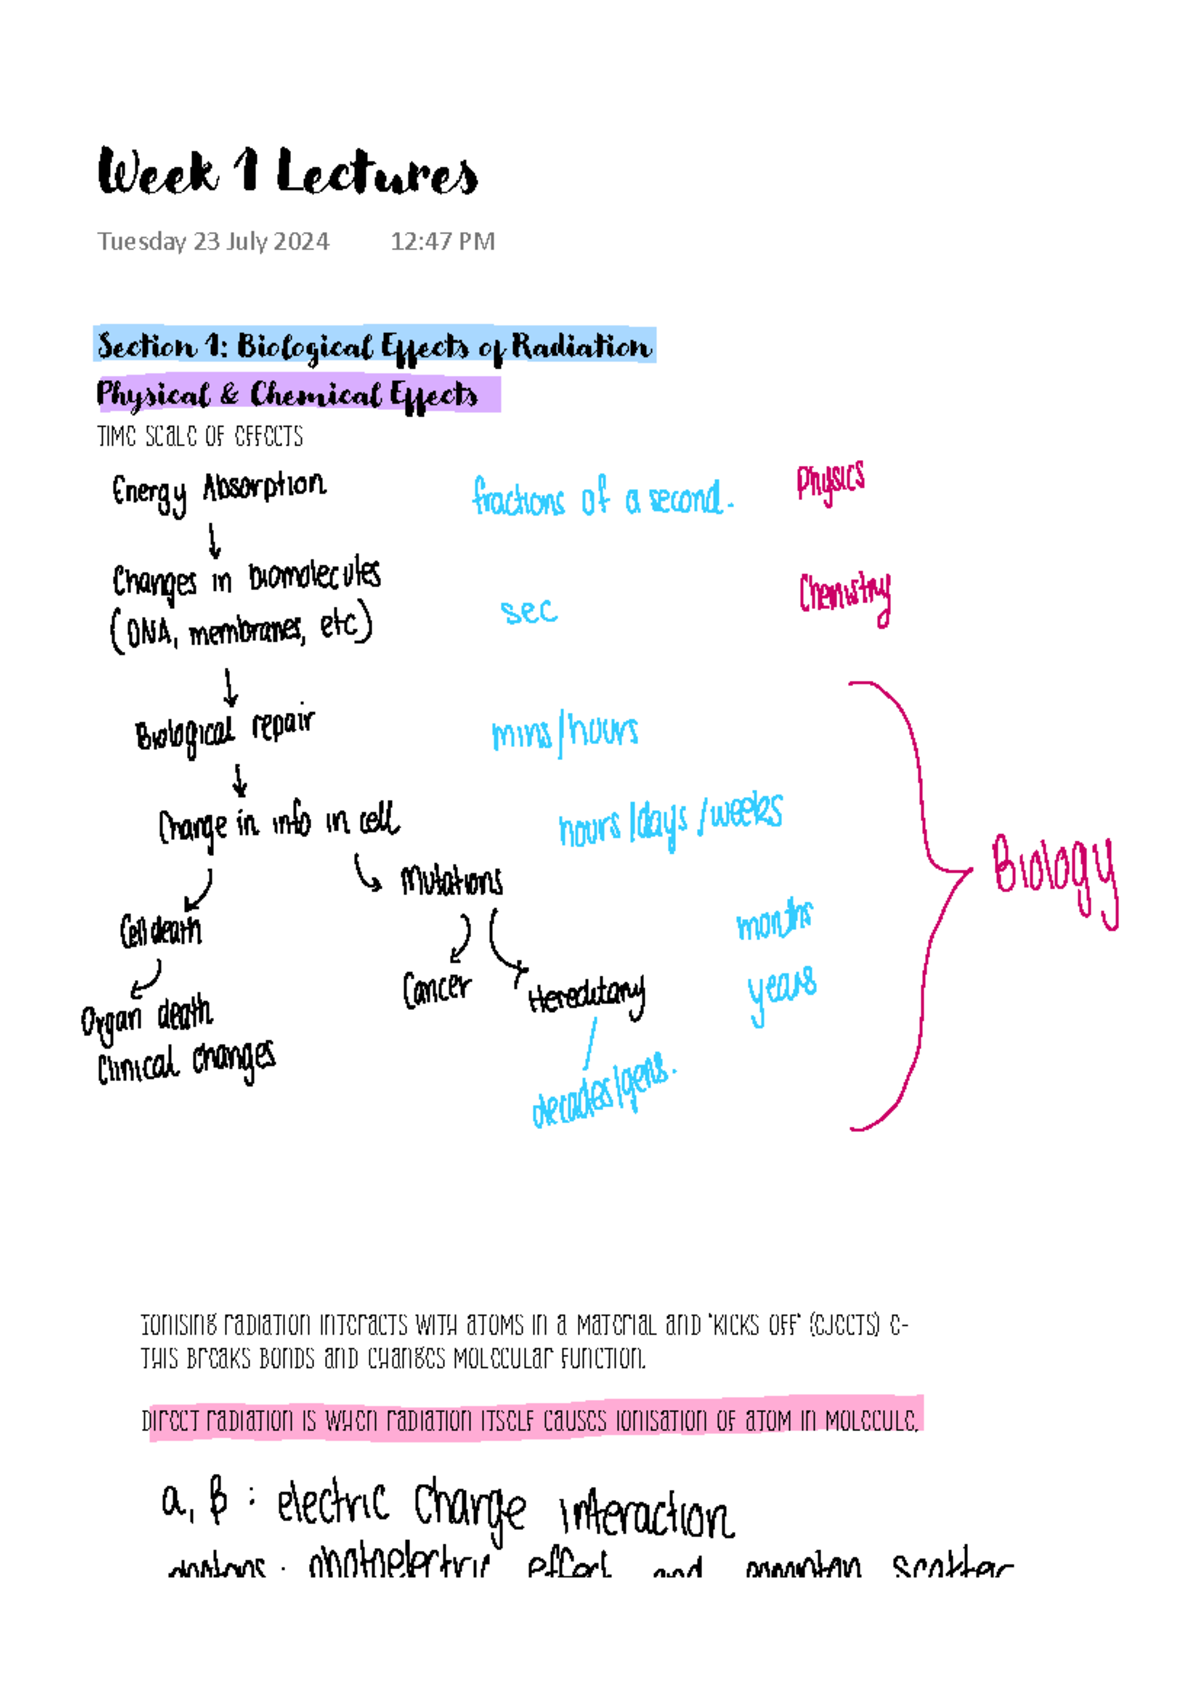 Week 1 Lectures
Tuesday 23 July 2024 12:47 PM
Section 1: Biological Effects of Radiation
Physical & Chemical Effects
TIME SCALE OF EFFECTS
Energy Absorption fractions of a second. Physics
↓
Changes in biomolecules
(DNA, membranes, etc) sec Chemistry
↓
Biological repair mins/hours
↓
Change in info in cell hours/days/weeks
Mutations Biology
Cell death months
Cancer Hereditary years
Organ death
Clinical changes
decades/gens.
Ionising radiation interacts with atoms in a material and 'kicks off' (ejects) e-
This breaks bonds and changes molecular function.
Direct radiation is when radiation itself causes ionisation of atom in molecule.
a, β : electric charge interaction
photoelectric effect and scatter